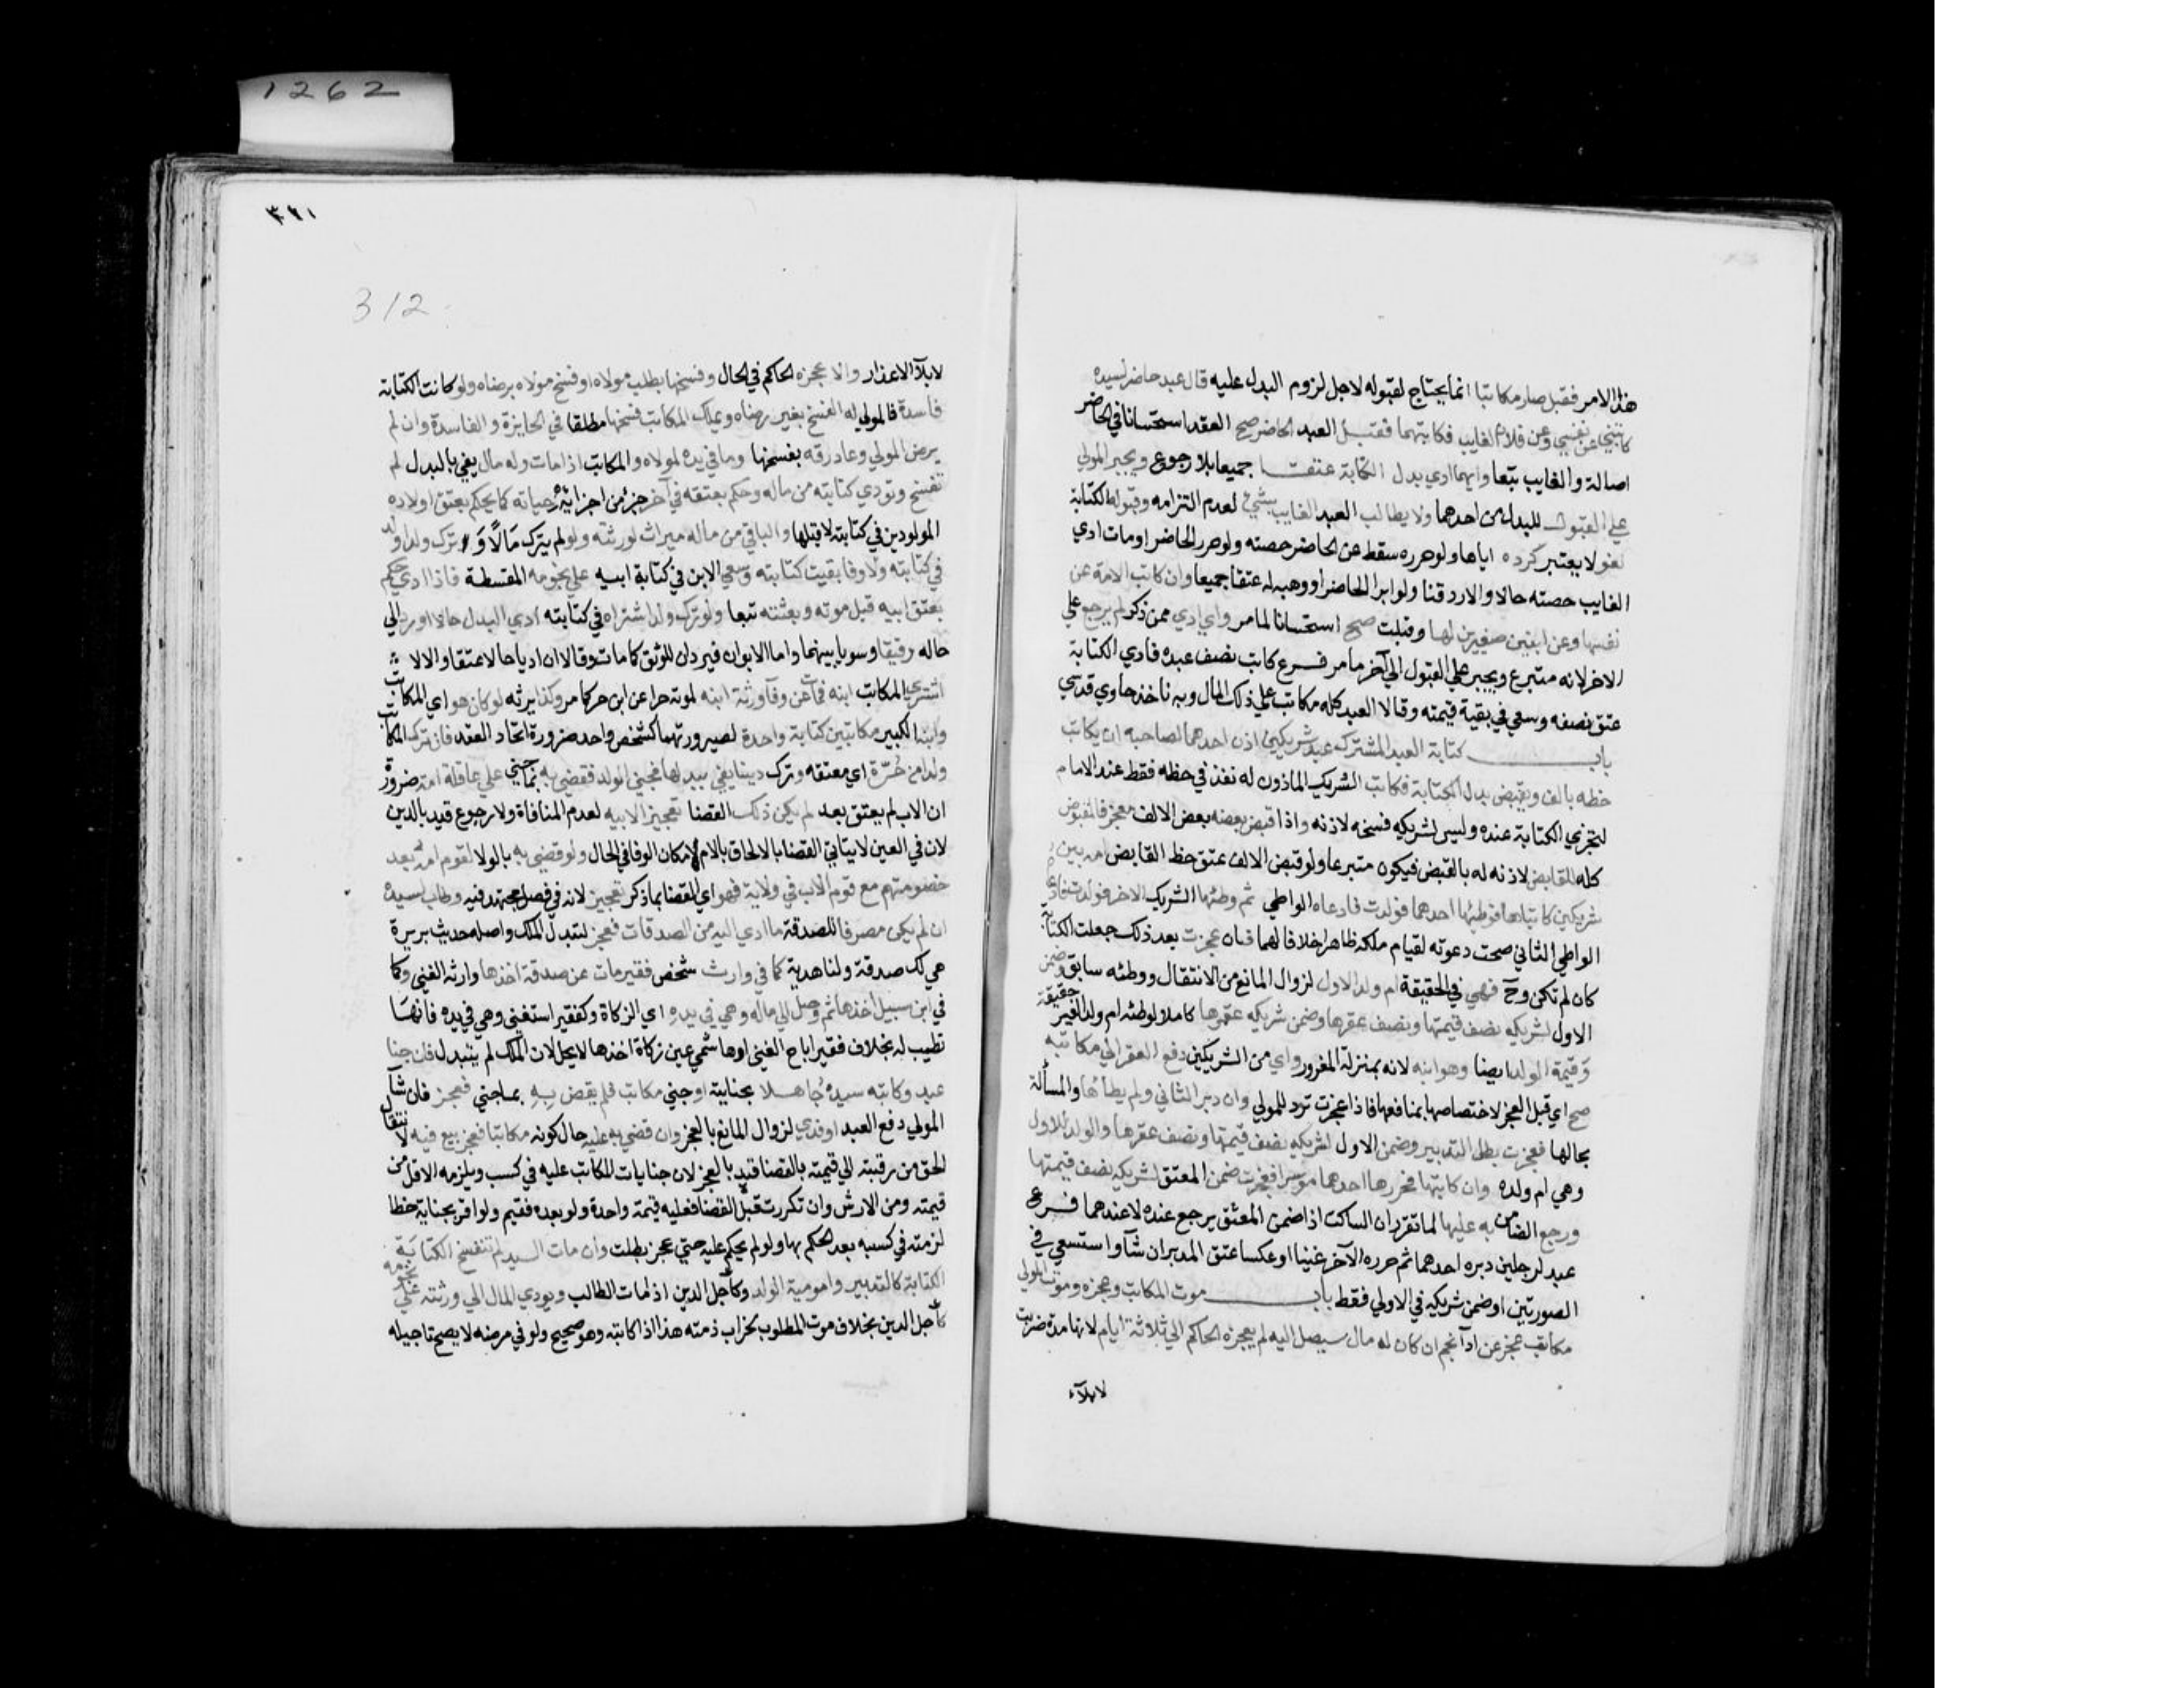 هذا الامر فقبل صار مكاتبا انما يحتاج لقبوله لاجل لزوم البدل عليه قال عبد حاضر لسيده
كاتبني عن نفسي وعن فلان الغايب فكاتبهما فقبل العبد الحاضر صح العقد استحسانا في الحاضر
اصالة والغايب تبعا وايهما ادي بدل الكتابة عتقا جميعا بلا رجوع ويجبر المولي
علي القبول للبدل من احدهما ولا يطالب العبد الغايب بشيء لعدم التزامه وقبوله الكتابة
لغو لا يعتبر كرده اياها ولو حرره سقط عن الحاضر حصته ولو حرر الحاضر او مات ادي
الغايب حصته حالا والا رد قنا ولو ابرا الحاضر او وهبه له عتقا جميعا وان كاتب الامة عن
نفسها وعن ابنين صغيرين لها وقبلت صح استحسانا لما مر واي ادي ممن ذكر لم يرجع علي
الاخر لانه متبرع ويجبر علي القبول الي آخر ما مر فرع كاتب نصف عبده فادي الكتابة
عتق نصفه وسعي في بقية قيمته وقالا العبد كله مكاتب علي ذلك المال وبه ناخذ حاوي قدسي
باب كتابة العبد المشترك عبد شريكين اذن احدهما لصاحبه ان يكاتب
حظه بالف ويقبض بدل الكتابة فكاتب الشريك الماذون له نفذ في حظه فقط عند الامام
لتجزي الكتابة عنده وليس لشريكه فسخه لاذنه واذا اقبض بعضه بعض الالف فعجز فالمقبوض
كله للقابض لاذنه له بالقبض فيكون متبرعا ولو قبض الالف عتق حظ القابض امة بين
شريكين كاتباها فوطئها احدهما فولدت فادعاه الواطي ثم وطئها الشريك الاخر فولدت فادعاه
الواطي الثاني صحت دعوته لقيام ملكه ظاهرا خلافا لهما فان عجزت بعد ذلك جعلت الكتابة
كان لم تكن وح فهي في الحقيقة ام ولد الاول لزوال المانع من الانتقال ووطئه سابق وضمن
الاول لشريكه نصف قيمتها ونصف عقرها وضمن شريكه عقرها كاملا لوطئه ام ولد الغير حقيقة
وقيمة الولد ايضا وهو ابنه لانه بمنزلة المغرور واي من الشريكين دفع العقر الي مكاتبه
صح اي قبل العجز لاختصاصها بمنافعها فاذا عجزت ترد للمولي وان دبر الثاني ولم يطاها والمسألة
بحالها فعجزت بطل التدبير وضمن الاول لشريكه نصف قيمتها ونصف عقرها والولد للاول
وهي ام ولده وان كاتبها فحررها احدهما موسرا فعجزت ضمن المعتق لشريكه نصف قيمتها
ورجع الضامن به عليها لما تقرر ان الساكت اذا ضمن المعتق يرجع عنده لا عندهما فرع
عبد لرجلين دبره احدهما ثم حرره الآخر غنيا او عكسا عتق المدبر ان شآ او استسعي في
الصورتين او ضمن شريكه في الاولي فقط باب موت المكاتب وعجزه وموت المولي
مكاتب عجز عن ادآ نجم ان كان له مال سيصل اليه لم يعجزه الحاكم الي ثلاثة ايام لانها مدة ضربت
لابلآء
٣٢١
312
لابلآ الاعذار والا عجزه الحاكم في الحال وفسخها بطلب مولاه او فسخ مولاه برضاه ولو كانت الكتابة
فاسدة فالمولي له الفسخ بغير رضاه ويملك المكاتب فسخها مطلقا في الجايزة والفاسدة وان لم
يرض المولي وعاد رقه بفسخها وما في يده لمولاه والمكاتب اذا مات وله مال يفي بالبدل لم
تفسخ وتودي كتابته من ماله وحكم بعتقه في آخر جزء من اجزاء حياته كما يحكم بعتق اولاده
المولودين في كتابته لا قبلها والباقي من ماله ميراث لورثته ولو لم يترك مالا وترك ولدا ولد
في كتابته ولا وفا بقيت كتابته وسعي الابن في كتابة ابيه علي نجومه المقسطة فاذا ادي حكم
بعتق ابيه قبل موته وبعتقه تبعا ولو ترك ولدا اشتراه في كتابته ادي البدل حالا او رد الي
حاله رقيقا وسويا بينهما واما الابوان فيردان للرق كما مات وقالا ان اديا حالا عتقا والا لا
اشتري المكاتب ابنه فمات عن وفآ ورثه ابنه لموته حرا عن ابن حر كما مر وكذا يرثه لو كان هو اي المكاتب
وابنه الكبير مكاتبين كتابة واحدة لصيرورتهما كشخص واحد ضرورة اتحاد العقد فان ترك المكاتب
ولدا من حرة اي معتقه وترك دينا يفي ببدلها فجني الولد فقضي به بما جني علي عاقلة امه ضرورة
ان الاب لم يعتق بعد لم يكن ذلك القضا تعجيزا لابيه لعدم المنافاة ولا رجوع قيد بالدين
لان في العين لا يتاتي القضا بالالحاق بالام لامكان الوفا في الحال ولو قضي به بالولا لقوم امه بعد
خصومتهم مع قوم الاب في ولاية فهو اي القضا بما ذكر تعجيز لانه في فصل مجتهد فيه وطاب لسيده
ان لم يكن مصرفا للصدقة ما ادي اليه من الصدقات فعجز لتبدل الملك واصله حديث بريرة
هي لك صدقة ولنا هدية كما في وارث شخص فقير مات عن صدقة اخذها وارثه الغني وكما
في ابن سبيل اخذها ثم وصل الي ماله وهي في يده اي الزكاة وكفقير استغني وهي في يده فانها
تطيب له بخلاف فقير اباح الغني او هاشمي عين زكاة اخذها لا يحل لان الملك لم يتبدل فان جنا
عبد وكاتبه سيده جاهلا بجنايته او جني مكاتب فلم يقض به بما جني فعجز فان شآ
المولي دفع العبد او فدي لزوال المانع بالعجز وان قضي به عليه حال كونه مكاتبا فعجز بيع فيه لانتقال
الحق من رقبته الي قيمته بالقضا قيد بالعجز لان جنايات المكاتب عليه في كسب ويلزمه الاقل من
قيمته ومن الارش وان تكررت قبل القضا فعليه قيمة واحدة ولو بعده فقيم ولو اقر بجناية خطا
لزمته في كسبه بعد الحكم بها ولو لم يحكم عليه حتي عجز بطلت وان مات السيد لم تنفسخ الكتابة
الكتابة كالتدبير وامومية الولد وكاجل الدين اذا مات الطالب ويودي المال الي ورثته علي نجومه
كاجل الدين بخلاف موت المطلوب لخراب ذمته هذا اذا كاتبه وهو صحيح ولو في مرضه لا يصح تاجيله
1262